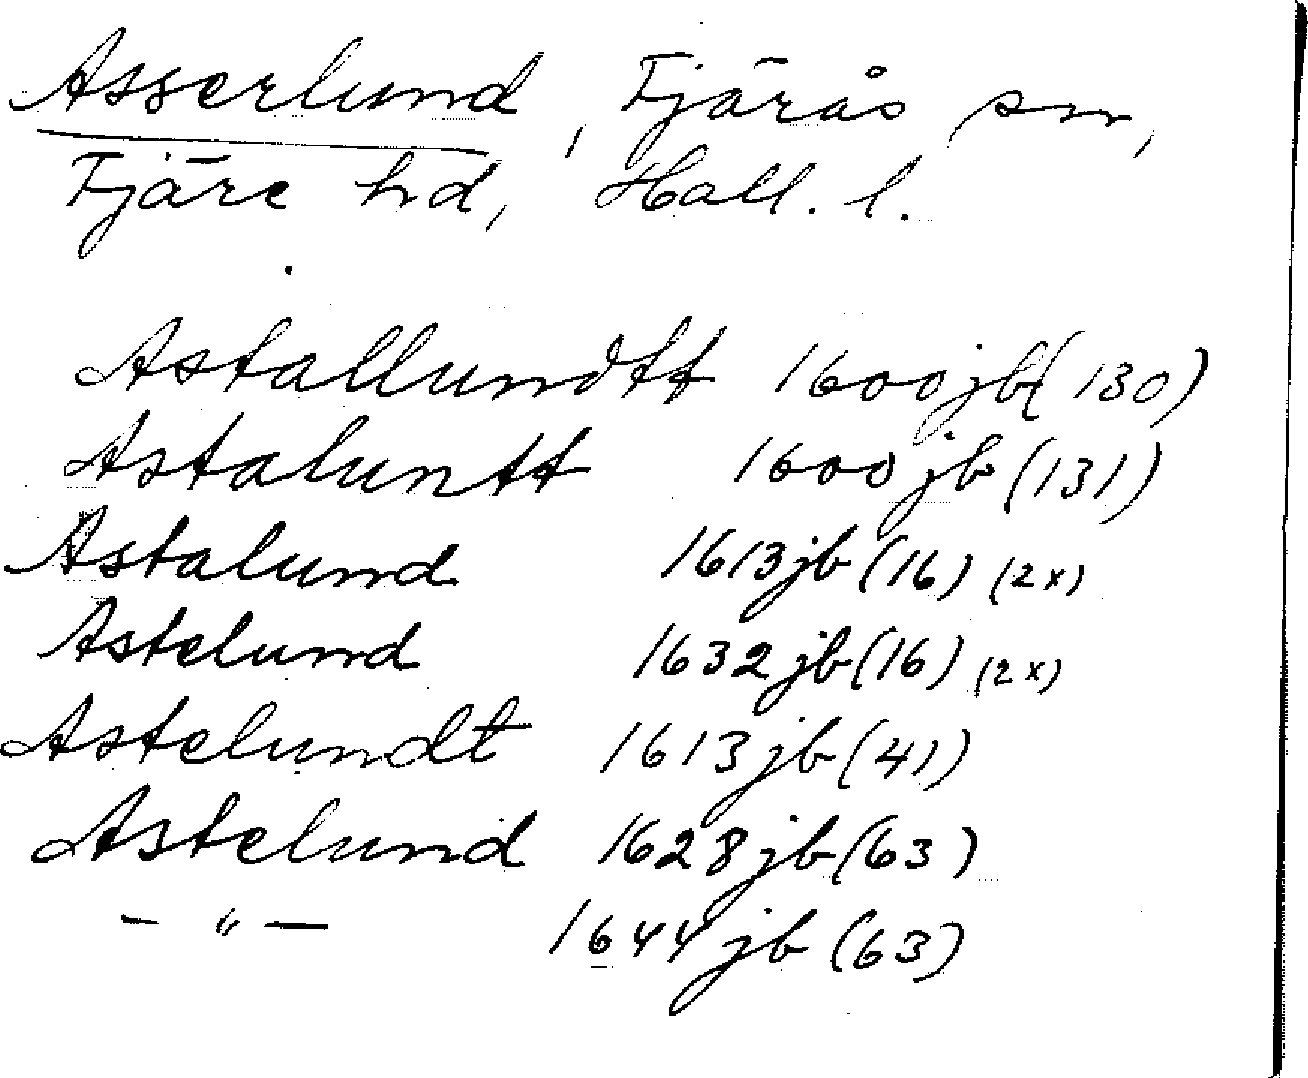 Asserlund, Fjärås sn,
Fjäre hd, Hall. l.
Astallundtt 1600 jb (130)
Astaluntt 1600 jb (131)
Astalund 1613 jb (16) (2x)
Astelund 1632 jb (16) (2x)
Astelundt 1613 jb (41)
Astelund 1628 jb (63)
— " — 1644 jb (63)